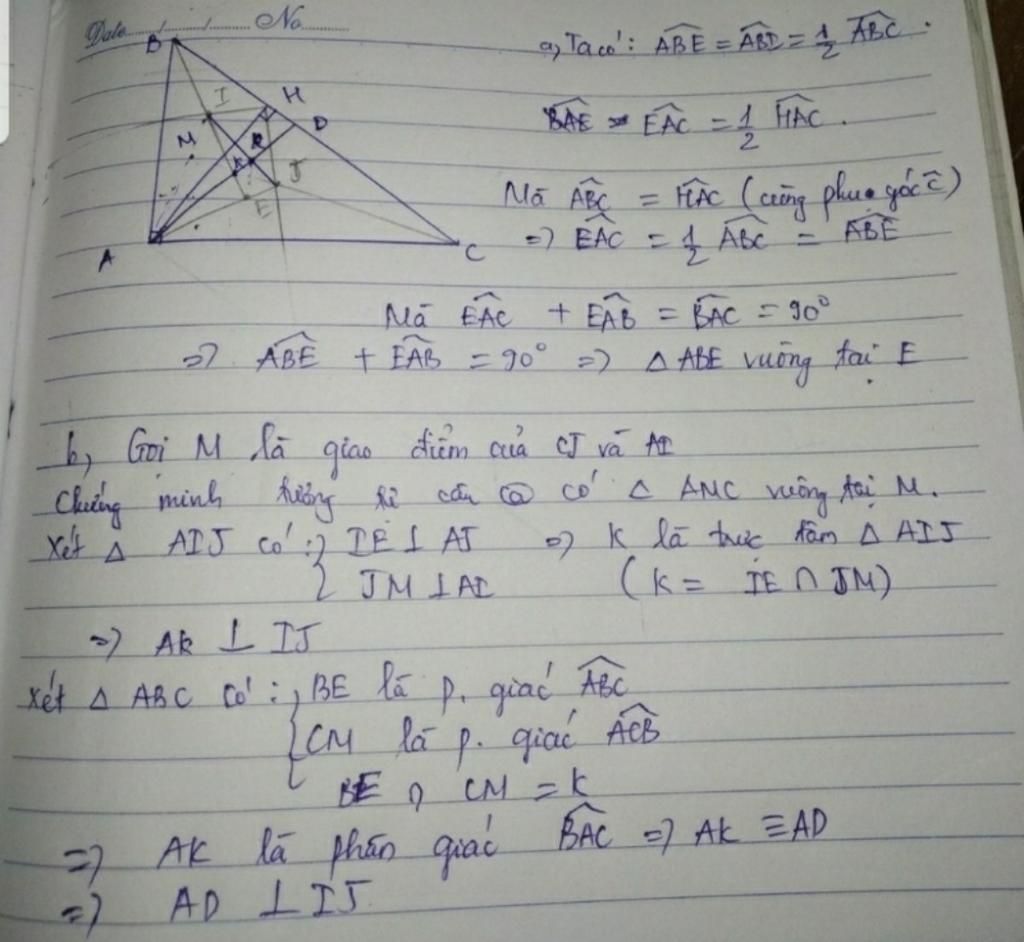 Date ..... / ..... / ..... No ..........
B
I
H
D
M
K
J
E
A
C
a, Ta có: ABE = ABD = 1/2 ABC.
BAE = EAC = 1/2 HAC.
Mà ABC = HAC (cùng phụ góc C)
=> EAC = 1/2 ABC = ABE
Mà EAC + EAB = BAC = 90°
=> ABE + EAB = 90° => Δ ABE vuông tại E
b, Gọi M là giao điểm của CJ và AI
Chứng minh tương tự câu a có Δ AMC vuông tại M.
Xét Δ AIJ có: { IE ⊥ AJ => K là trực tâm Δ AIJ
{ JM ⊥ AI (K = IE ∩ JM)
=> AK ⊥ IJ
Xét Δ ABC có: { BE là p. giác ABC
{ CM là p. giác ACB
BE ∩ CM = K
=> AK là phân giác BAC => AK ≡ AD
=> AD ⊥ IJ